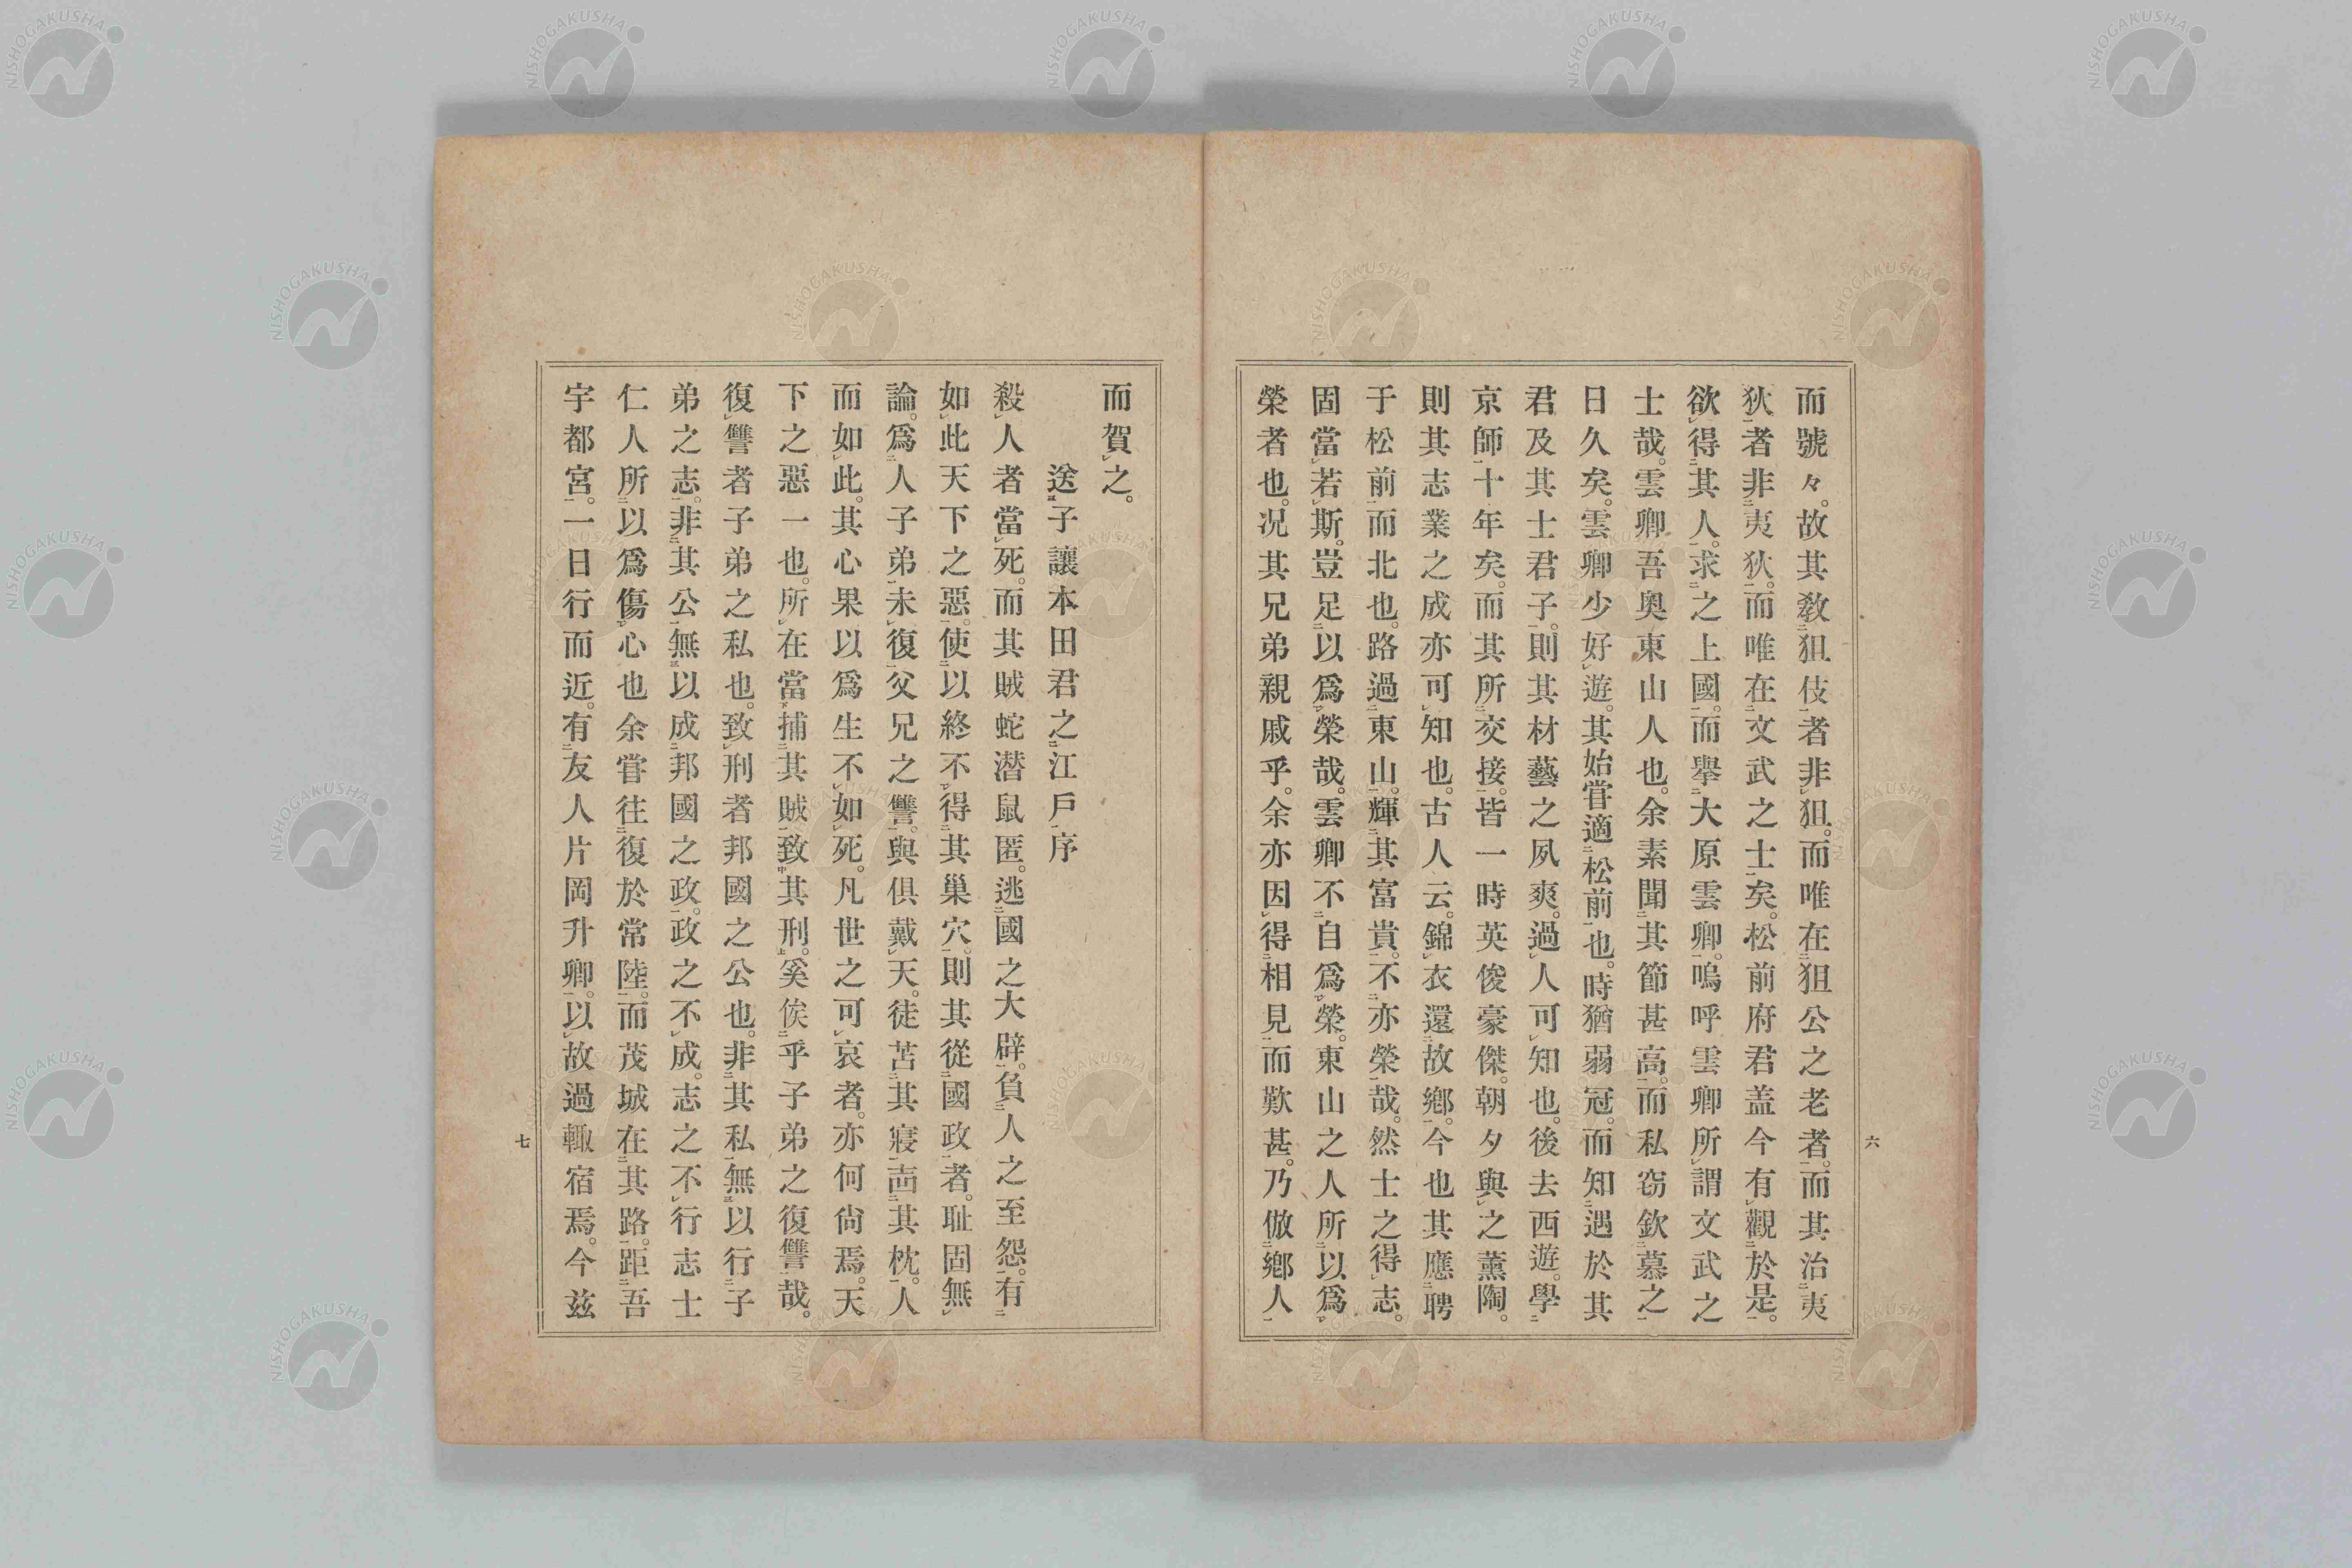 而號々。故其敎狙伎者非狙。而唯在狙公之老者。而其治夷
狄者非夷狄。而唯在文武之士矣。松前府君盖今有觀於是。
欲得其人。求之上國。而擧大原雲卿。嗚呼雲卿所謂文武之
士哉。雲卿吾奧東山人也。余素聞其節甚高。而私窃欽慕之
日久矣。雲卿少好遊。其始甞適松前也。時猶弱冠。而知遇於其
君及其士君子。則其材藝之夙爽。過人可知也。後去西遊。學
京師十年矣。而其所交接。皆一時英俊豪傑。朝夕與之薰陶。
則其志業之成亦可知也。古人云。錦衣還故鄕。今也其應聘
于松前而北也。路過東山。輝其富貴。不亦榮哉。然士之得志。
固當若斯。豈足以爲榮哉。雲卿不自爲榮。東山之人所以爲
榮者也。况其兄弟親戚乎。余亦因得相見而歎甚。乃倣鄕人
六
而賀之。
送子讓本田君之江戶序
殺人者當死。而其賊蛇潜鼠匿。逃國之大辟。負人之至怨。有
如此天下之惡。使以終不得其巢穴。則其從國政者。耻固無
論。爲人子弟未復父兄之讐。與俱戴天。徒苫其寢。凷其枕。人
而如此。其心果以爲生不如死。凡世之可哀者。亦何尙焉。天
下之惡一也。所在當捕其賊致其刑。奚俟乎子弟之復讐哉。
復讐者子弟之私也。致刑者邦國之公也。非其私無以行子
弟之志。非其公無以成邦國之政。政之不成。志之不行志士
仁人所以爲傷心也余甞往復於常陸。而茂城在其路。距吾
宇都宮。一日行而近。有友人片岡升卿。以故過輙宿焉。今茲
七
NISHOGAKUSHA